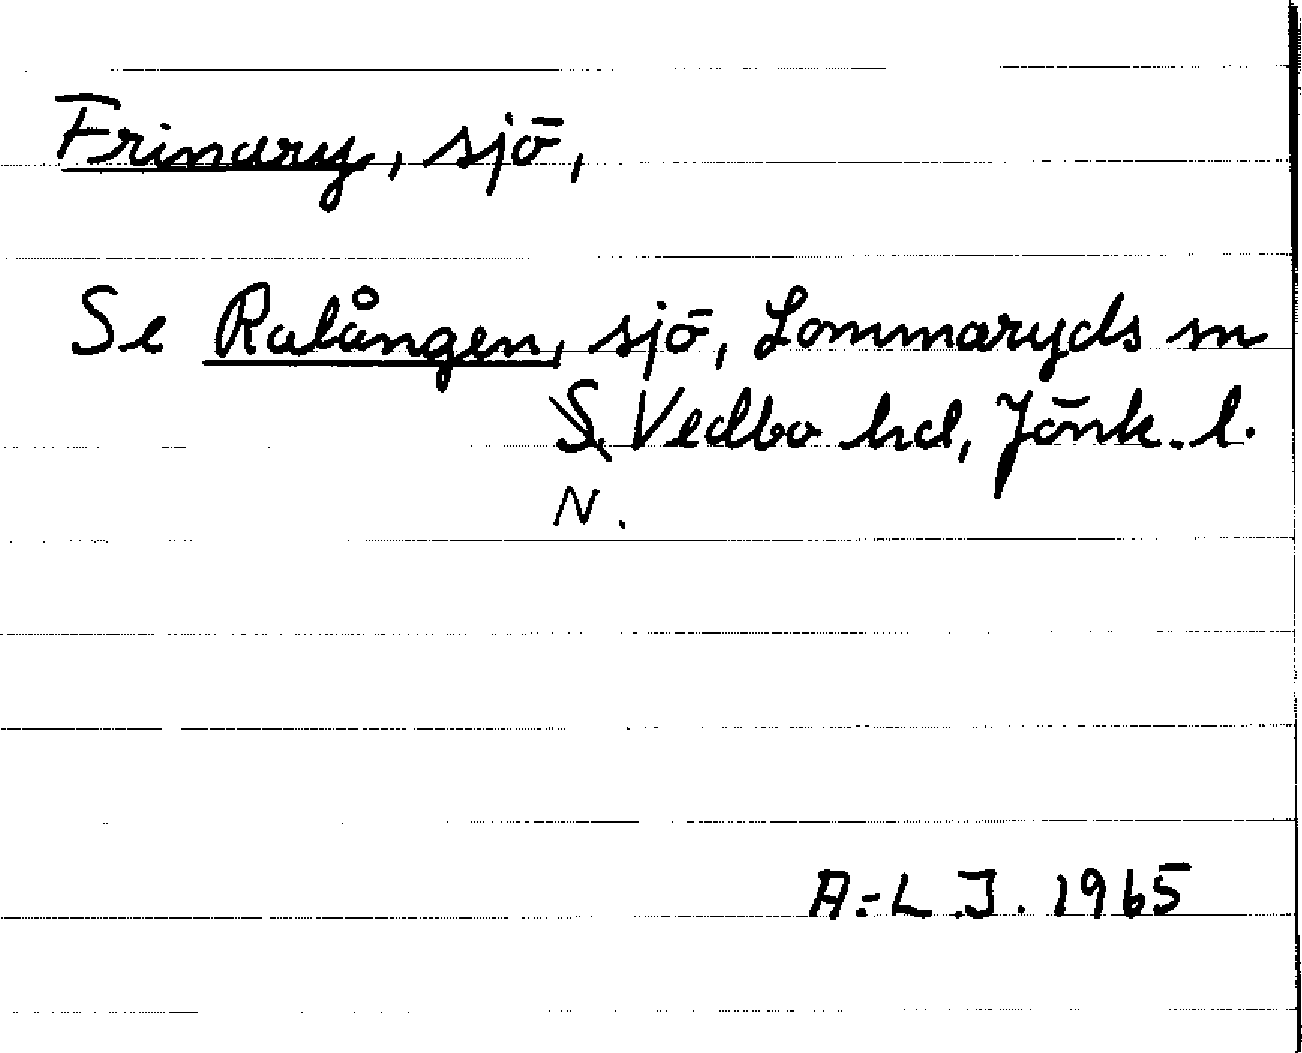 Frinary, sjö,
Se Ralången, sjö, Lommaryds sn
S. Vedbo hd, Jönk. l.
N.
A.-L. J. 1965